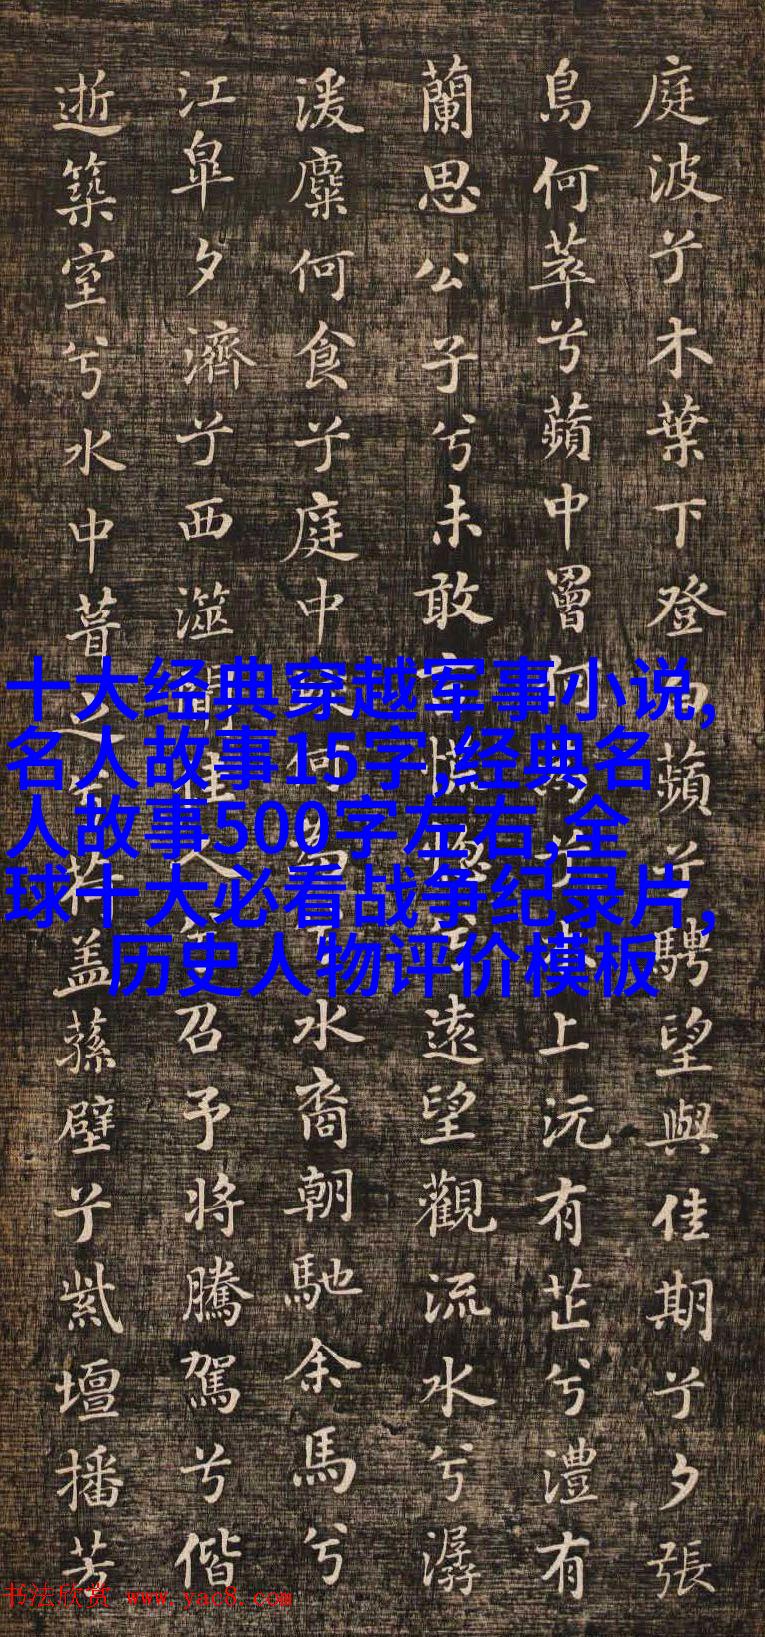 庭波兮木葉下登白蘋兮騁望與佳期兮夕張
鳥何萃兮蘋中罾何為兮木上沅有芷兮澧有
蘭思公子兮未敢言慌惚兮遠望觀流水兮潺
湲麋何食兮庭中何為兮水裔朝馳余馬兮
江皐夕濟兮西澨聞佳人兮召予將騰駕兮偕
逝築室兮水中葺之荷蓋蓀壁兮紫壇播芳
十大经典穿越军事小说,
名人故事15字,经典名
人故事500字左右,全
球十大必看战争纪录片,
历史人物评价模板
书法欣赏 www.yac8.com